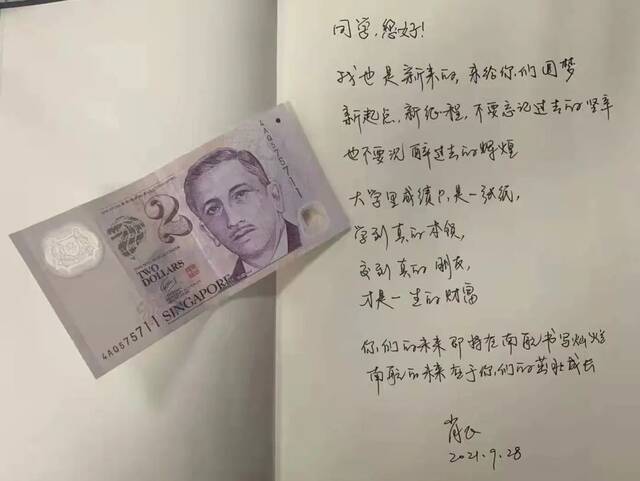 4A0575711
2
TWO
DOLLARS
SINGAPORE
4A0575711
同学,您好!
我也是新来的,来给你们圆梦
新起点,新征程,不要忘记过去的坚辛
也不要沉醉过去的辉煌
大学里成绩只是一张纸,
学到真的本领,
交到真的朋友,
才是一生的财富
你们的未来即将在南航书写灿烂
南航的未来在于你们的茁壮成长
2021.9.28